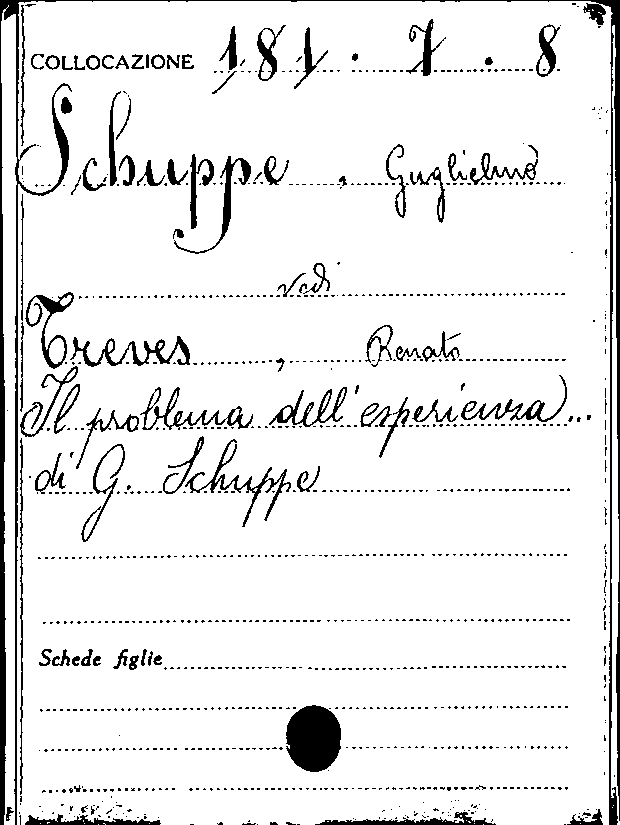 COLLOCAZIONE 181 . 7 . 8
Schuppe , Guglielmo
vedi
Treves , Renato
Il problema dell'esperienza...
di G. Schuppe
Schede figlie